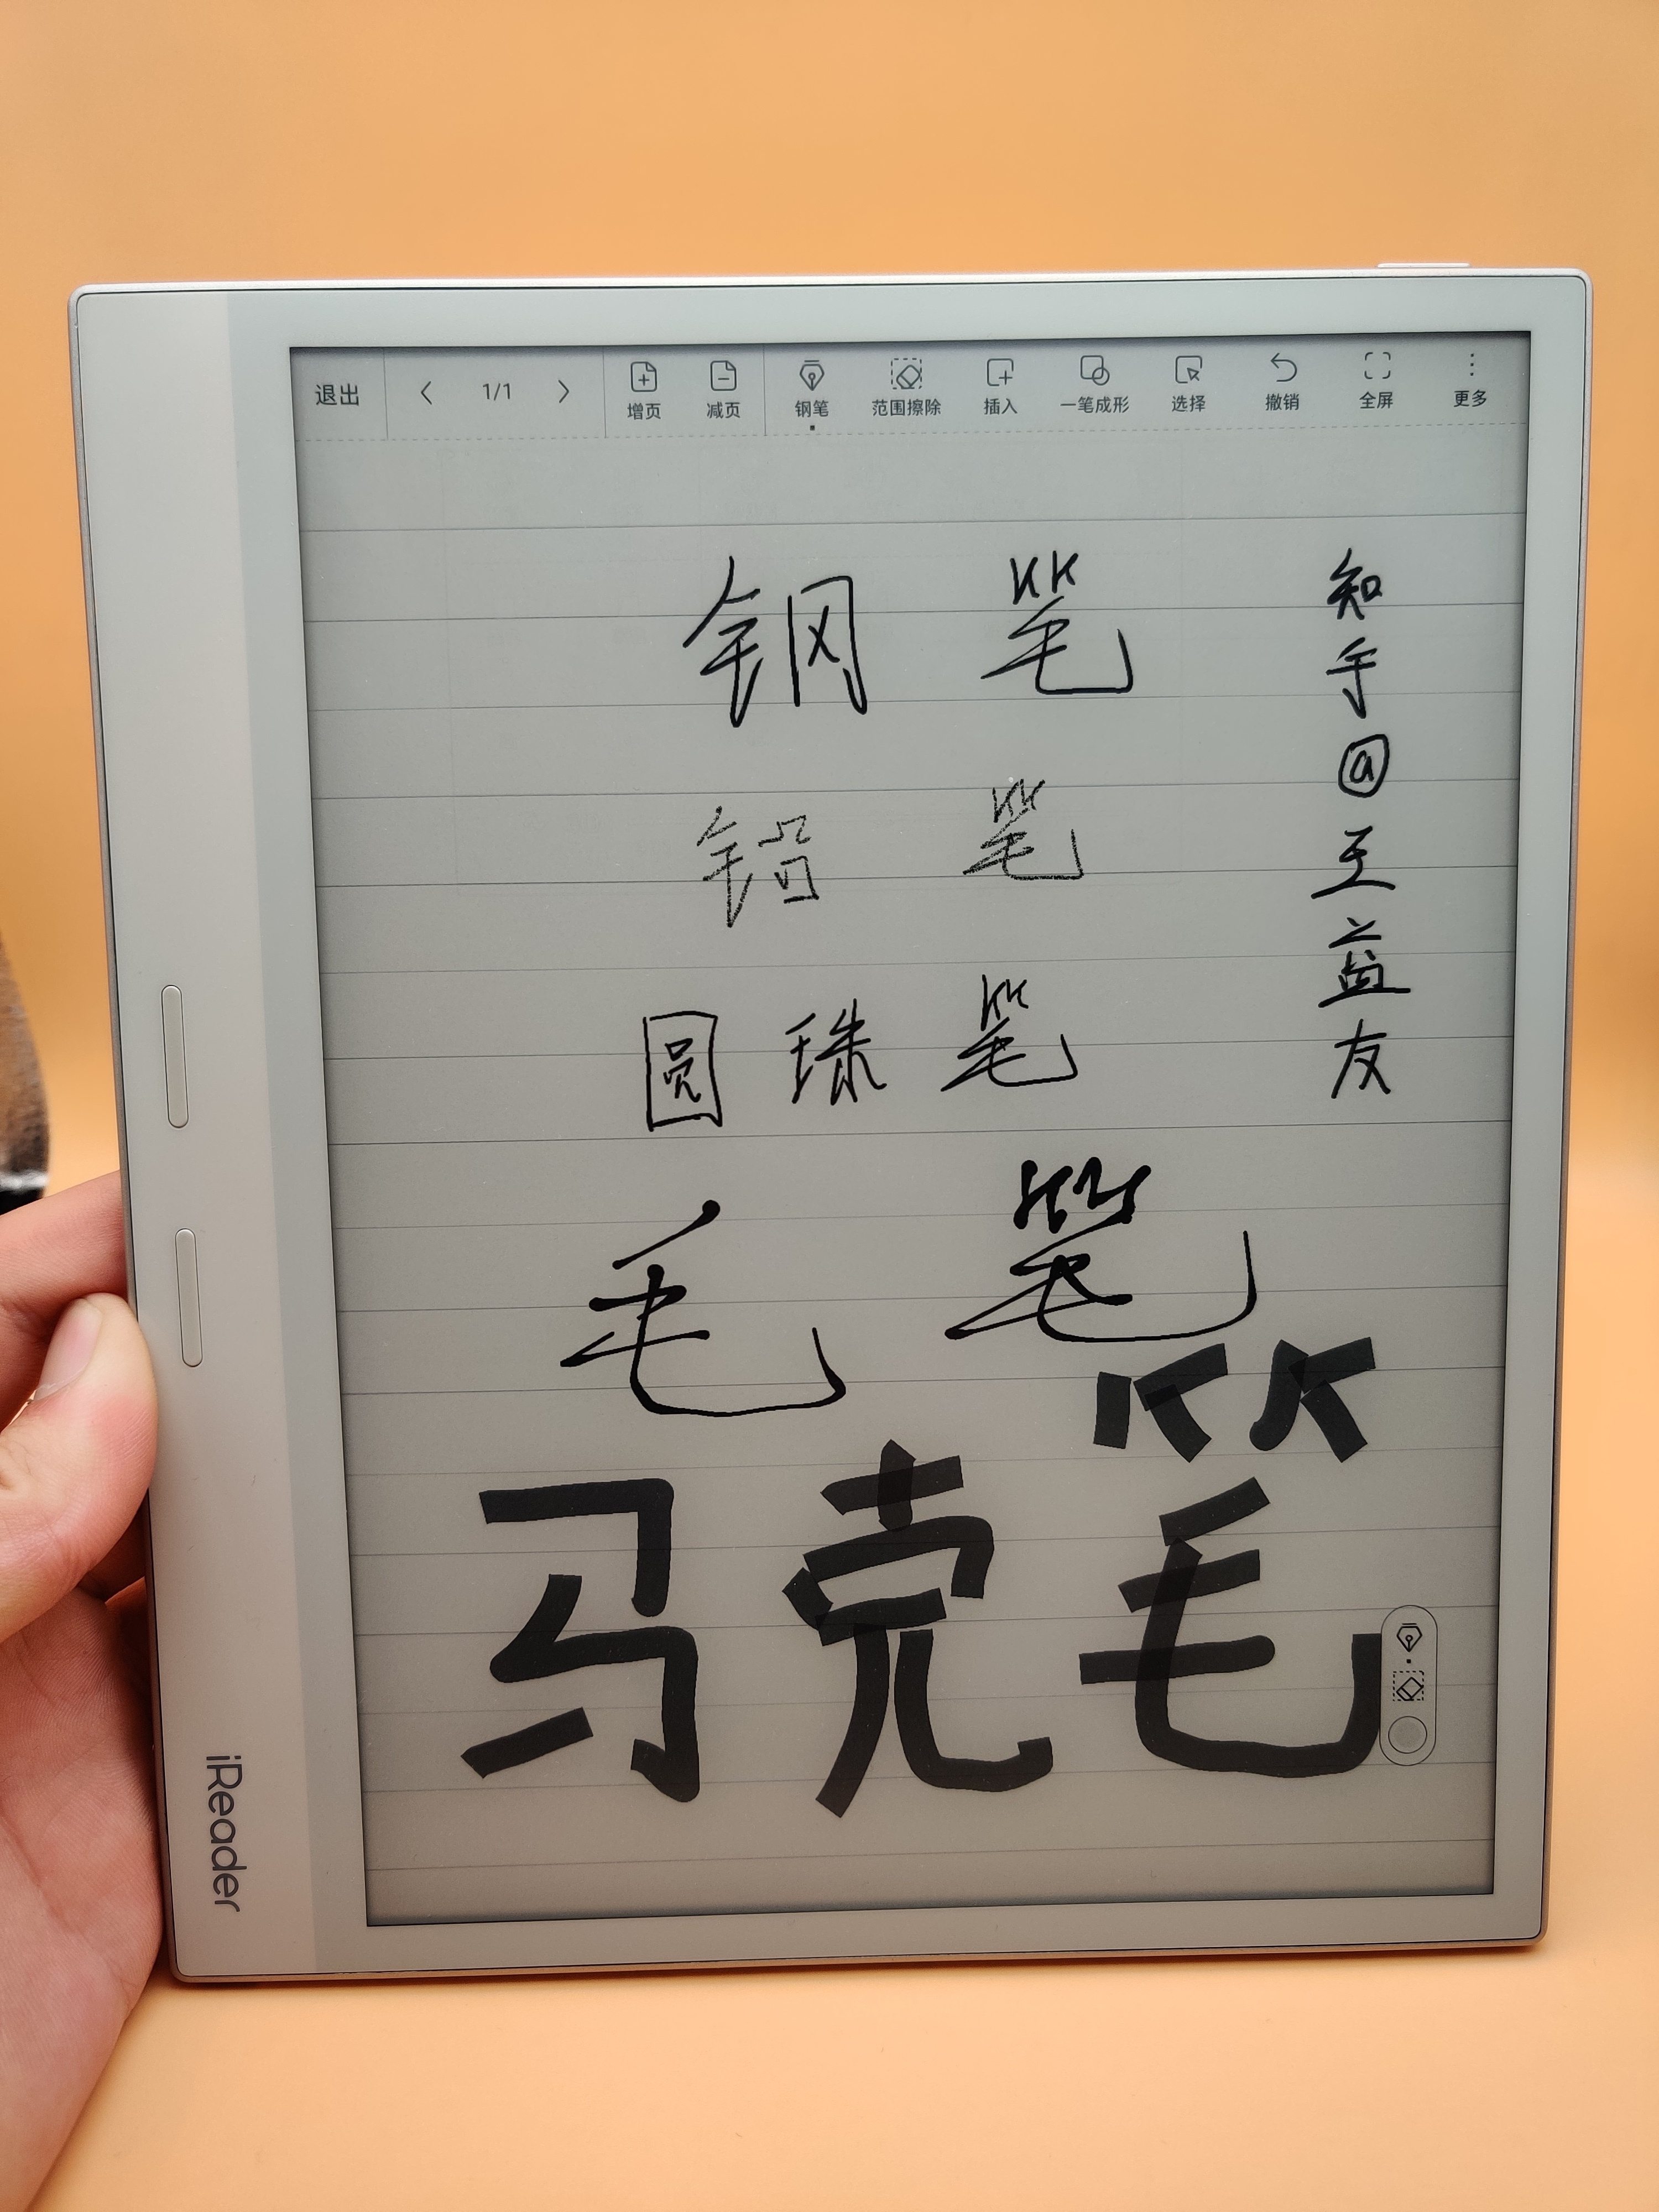 退出 1/1 增页 减页 钢笔 范围擦除 插入 一笔成形 选择 撤销 全屏 更多
钢笔
铅笔
圆珠笔
毛笔
马克笔
知乎@王益友
iReader